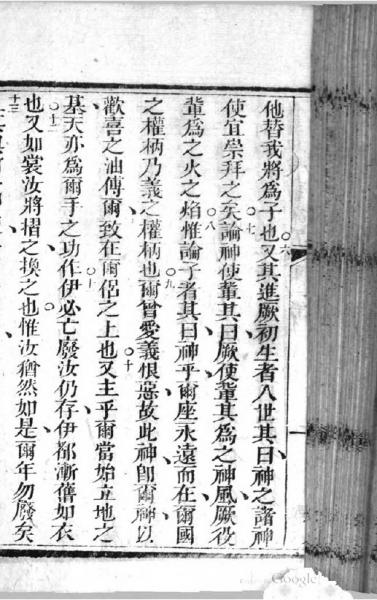 他替我將為子也○六又其進厥初生者入世其曰神之諸神
使宜崇拜之矣○七論神使輩其曰厥使輩其為之神風厥役
輩為之火之焰○八惟論子者其曰神乎爾座永遠而在爾國
之權柄乃義之權柄也○九爾曾愛義恨惡故此神即爾神以
歡喜之油傅爾致在爾侶之上也○十又主乎爾當始立地之
基天亦為爾手之功作○十一伊必亡廢汝仍存伊都漸舊如衣
也○十二又如裳汝將摺之換之也惟汝猶然如是爾年勿廢矣
十三
Google